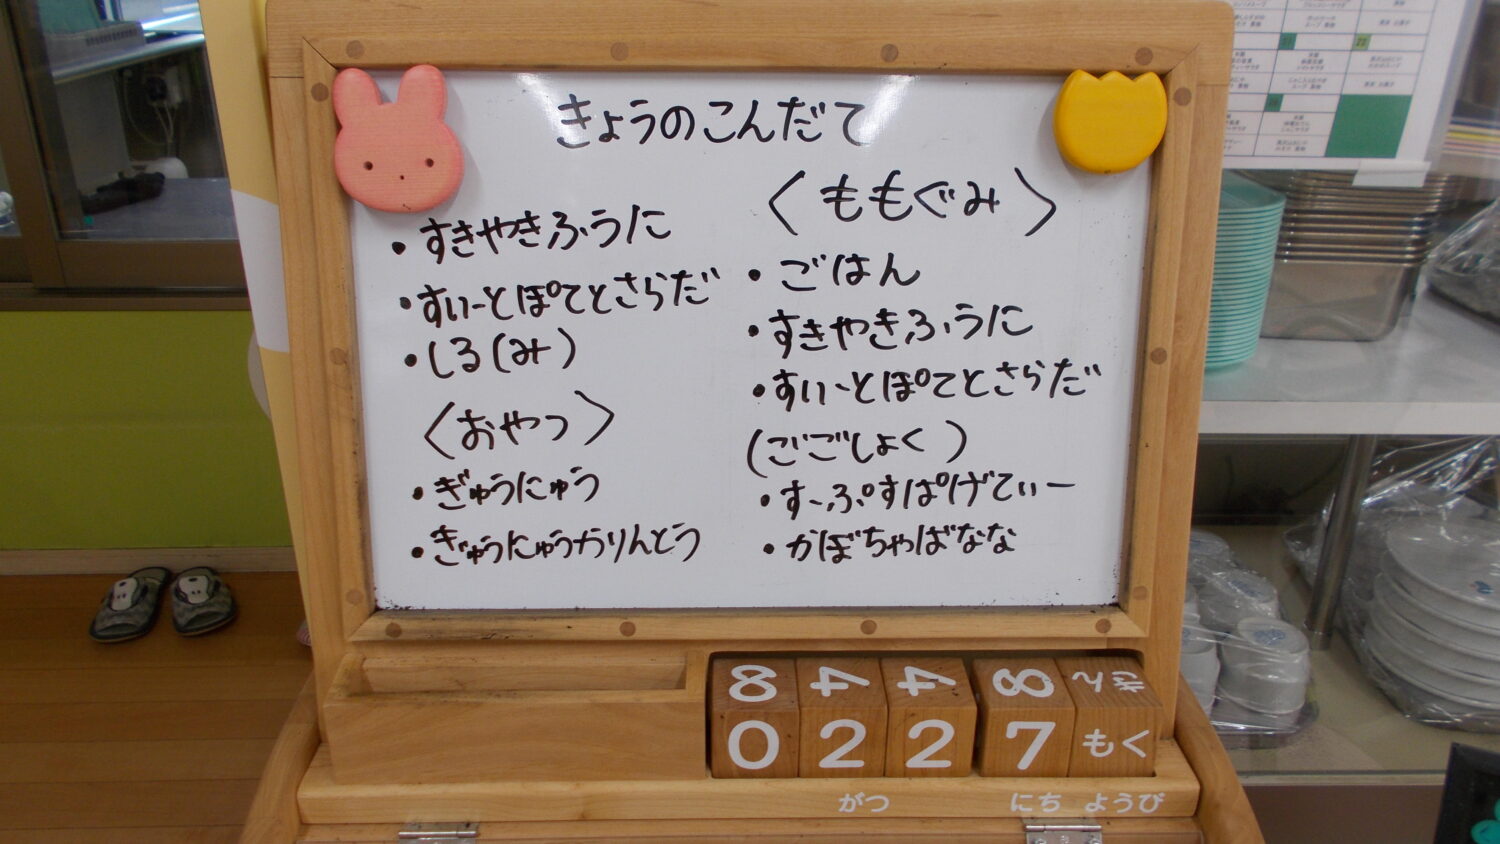 きょうのこんだて
・すきやきふうに
・すいーとぽてとさらだ
・しる(み)
〈おやつ〉
・ぎゅうにゅう
・ぎゅうにゅうかりんとう
〈ももぐみ〉
・ごはん
・すきやきふうに
・すいーとぽてとさらだ
(ごごしょく)
・すーぷすぱげてぃー
・かぼちゃばなな
8 4 4 8 きん
0 2 2 7 もく
がつ にち ようび